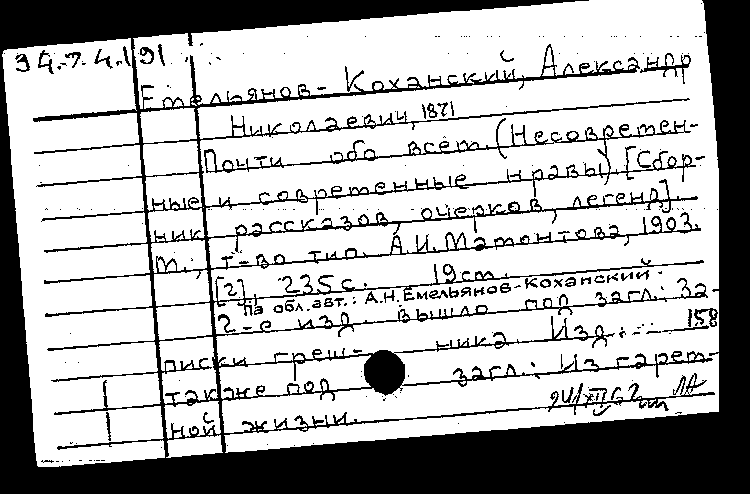 34.7.4.191
Емельянов-Коханский, Александр
Николаевич, 1871
Почти обо всем. (Несовремен-
ные и современные нравы). [Сбор-
ник рассказов, очерков, легенд].
М.; т-во тип. А.И. Мамонтова, 1903.
[2], 235 с. 19 см.
На обл. авт.: А.Н. Емельянов-Коханский.
2-е изд. вышло под загл.: За-
писки греш- ника. Изд.: 158
также под загл.: Из гарем-
ной жизни.